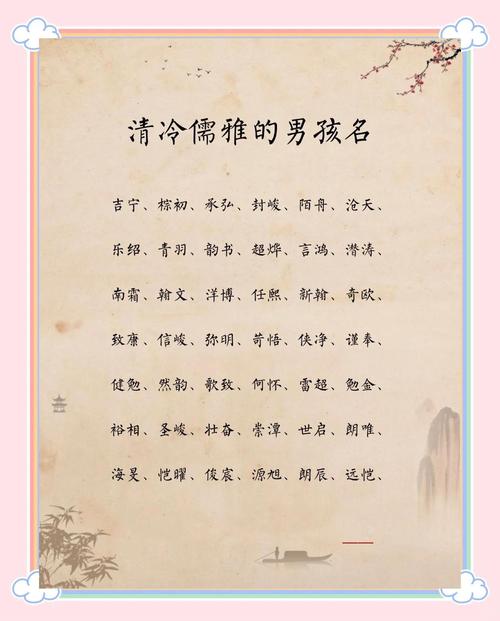 清冷儒雅的男孩名
吉宁、棕初、承弘、封峻、陌舟、沧天、
乐绍、青羽、韵书、超烨、言鸿、潜涛、
南霜、翰文、洋博、任熙、新翰、奇欧、
致康、信峻、弥明、苛悟、侠净、谨奉、
健勉、然韵、歌致、何怀、雷超、勉金、
裕相、圣峻、壮奋、崇潭、世启、朗唯、
海旻、恺曜、俊宸、源旭、朗辰、远恺、